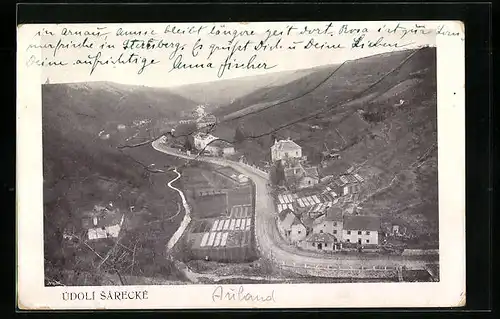 in Arnau, Amsse bleibt längere Zeit dort. Rosa ist zur
in Sternberg. Es grüßt Dich u Deine Lieben
Deine aufrichtige Anna Fischer
ÚDOLÍ ŠÁRECKÉ